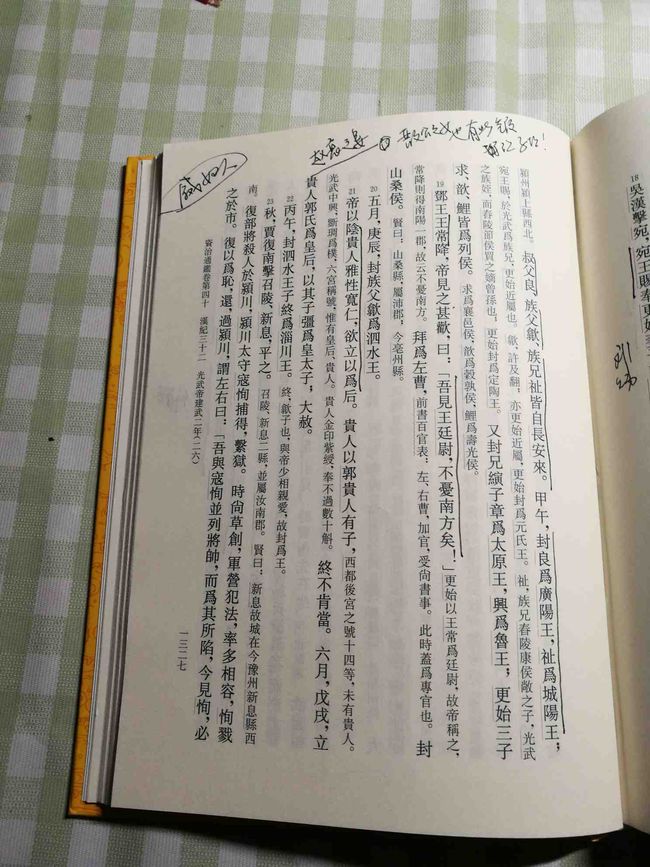 潁州潁上縣西北。叔父良、族父歙、族兄祉皆自長安來。甲午,封良爲廣陽王,祉爲城陽王;
宛王賜,於光武爲族兄,更始近屬也。歙、許及翻,亦更始近屬,更始封爲元氏王。祉,族兄舂陵康侯敞之子,光武
之族姪,而舂陵節侯買之嫡曾孫也;更始封爲定陶王。又封兄縯子章爲太原王,興爲魯王,更始三子
求、歆、鯉皆爲列侯。求爲襄邑侯,歆爲穀孰侯,鯉爲壽光侯。
19 鄧王王常降,帝見之甚歡,曰:「吾見王廷尉,不憂南方矣!」更始以王常爲廷尉,故帝稱之,
常降則得南陽一郡,故云不憂南方。拜爲左曹,前書百官表:左、右曹,加官,受尚書事。此時蓋爲專官也。封
山桑侯。賢曰:山桑縣,屬沛郡,今亳州縣。
20 五月,庚辰,封族父歙爲泗水王。
21 帝以陰貴人雅性寬仁,欲立以爲后。貴人以郭貴人有子,西都後宮之號十四等,未有貴人。
光武中興,斲琱爲樸,六宮稱號,惟有皇后、貴人。貴人金印紫綬,奉不過數十斛。終不肯當。六月,戊戌,立
貴人郭氏爲皇后,以其子彊爲皇太子;大赦。
22 丙午,封泗水王子終爲淄川王。終,歙子也,與帝少相親愛,故封爲王。
23 秋,賈復南擊召陵、新息,平之。召陵、新息二縣,並屬汝南郡。賢曰:新息故城在今豫州新息縣西
南。復部將殺人於潁川,潁川太守寇恂捕得,繫獄。時尚草創,軍營犯法,率多相容,恂戮
之於市。復以爲恥,還,過潁川,謂左右曰:「吾與寇恂並列將帥,而爲其所陷,今見恂,必
資治通鑑卷第四十 漢紀三十二 光武帝建武二年(二六)
一三二七
18 吳漢擊宛,宛王賜奉更始